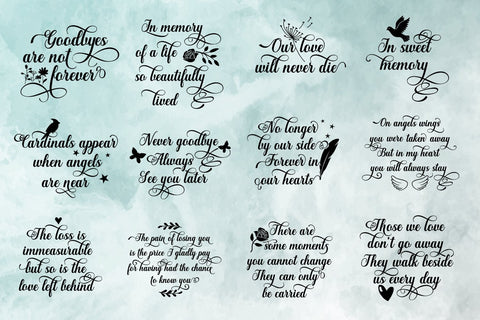 Goodbyes
are not
forever
In memory
of a life
so beautifully
lived
Our love
will never die
In sweet
memory
Cardinals appear
when angels
are near
Never goodbye
Always
See you later
No longer
by our side
Forever in
our hearts
On angels wings
you were taken away
But in my heart
you will always stay
The loss is
immeasurable
but so is the
love left behind
The pain of losing you
is the price I gladly pay
for having had the chance
to know you
There are
some moments
you cannot change
They can only
be carried
Those we love
don't go away
They walk beside
us every day